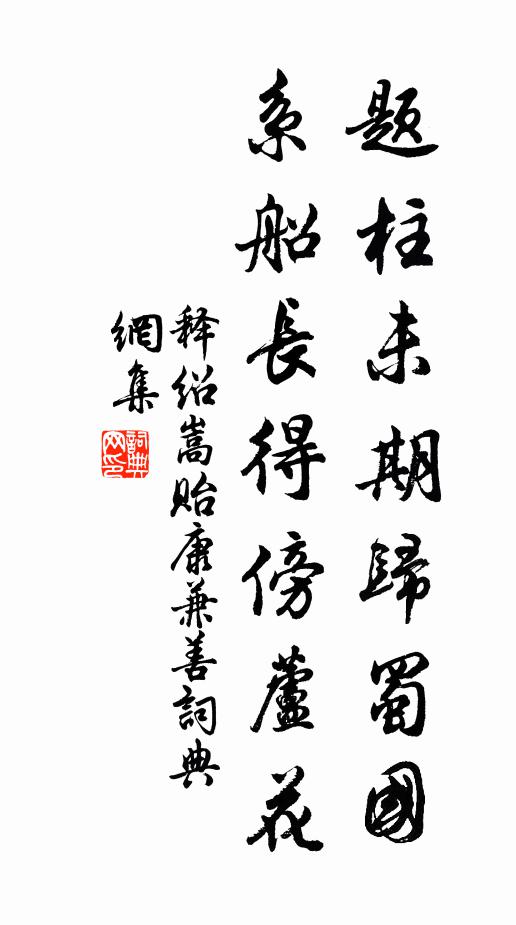 題柱未期歸蜀國
系船長得傍蘆花
释紹嵩貽康兼善詞典
網集
詞典网印